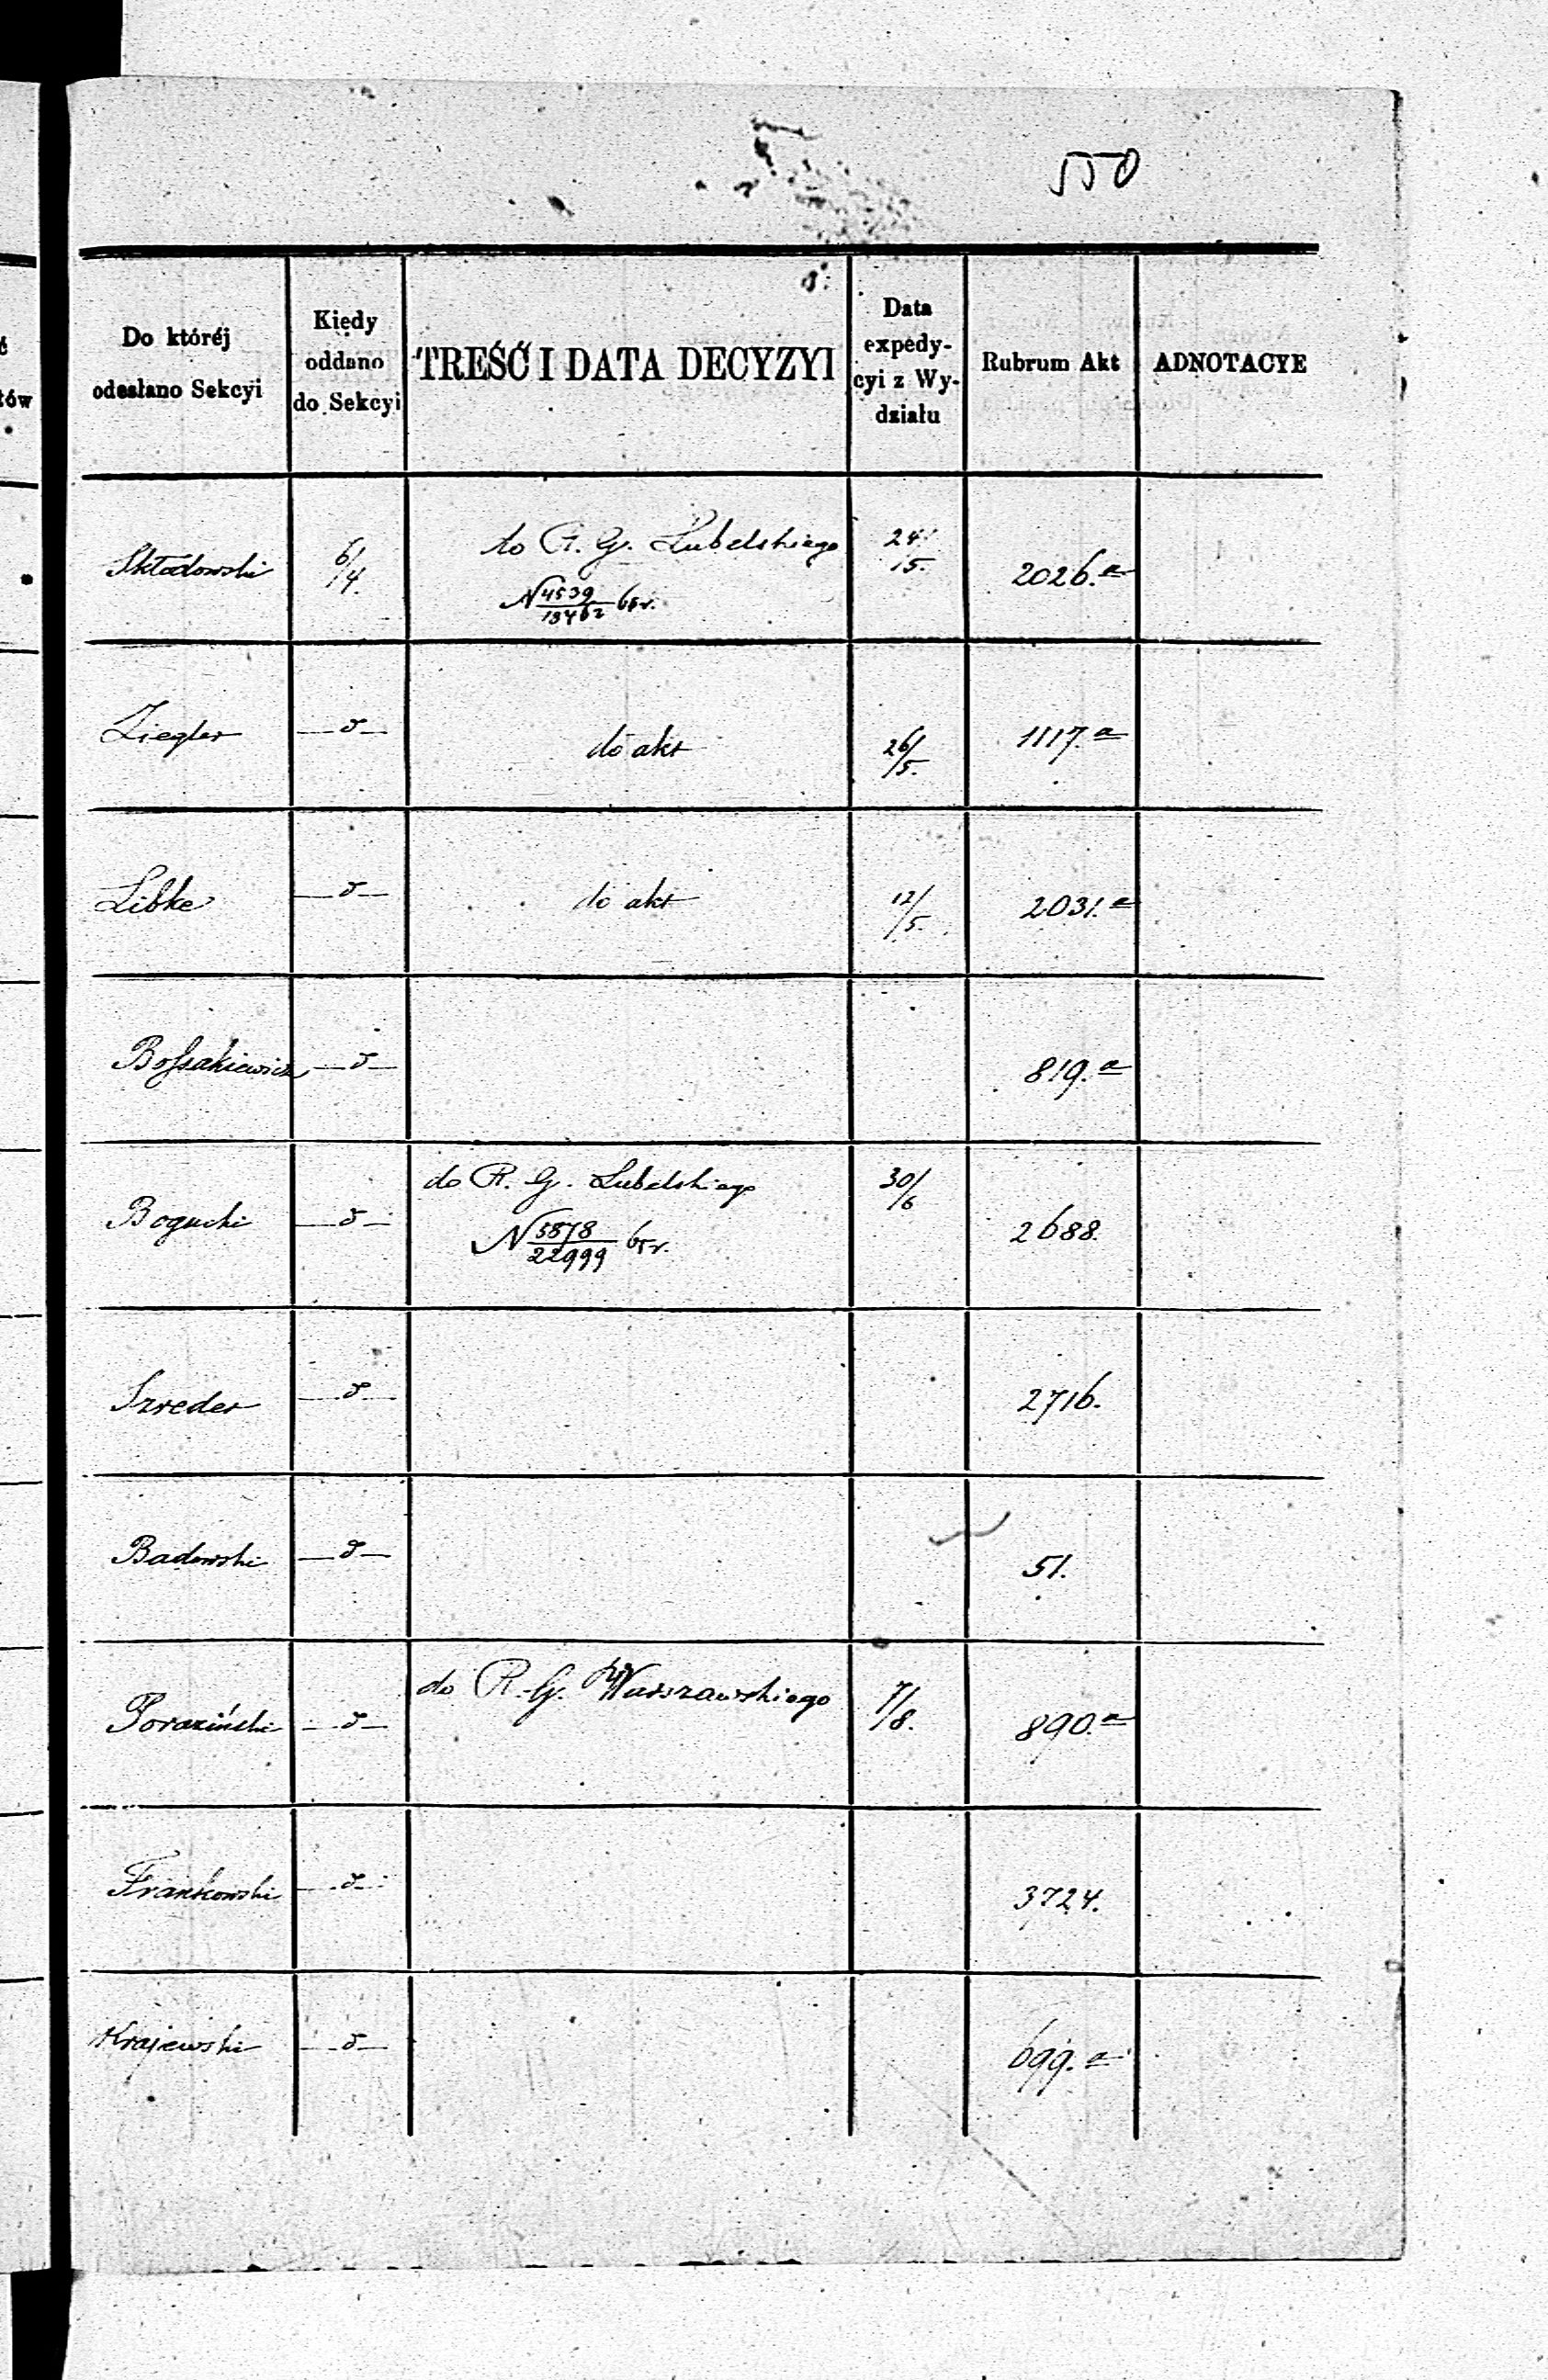 550
Do któréj
odesłano Sekcyi
Kiedy
oddano
do Sekcyi
TREŚĆ I DATA DECYZYI
Data
expedy-
cyi z Wy-
działu
Rubrum Akt
ADNOTACYE
Skłodowski 6/4. do R. G. Lubelskiego 24/5. 2026.a
N 4539/19462 65r.
Ziegler —d— do akt 26/5. 1117.a
Libke —d— do akt 12/5. 2031.a
Bossakiewicz —d— 819.a
Bogucki —d— do R. G. Lubelskiego 30/6 2688.
N 5878/22999 65r.
Szreder —d— 2716.
Badowski —d— 51.
Poraziński —d— do R. G. Warszawskiego 7/8. 890.a
Frankowski —d— 3724.
Krajewski —d— 699.a